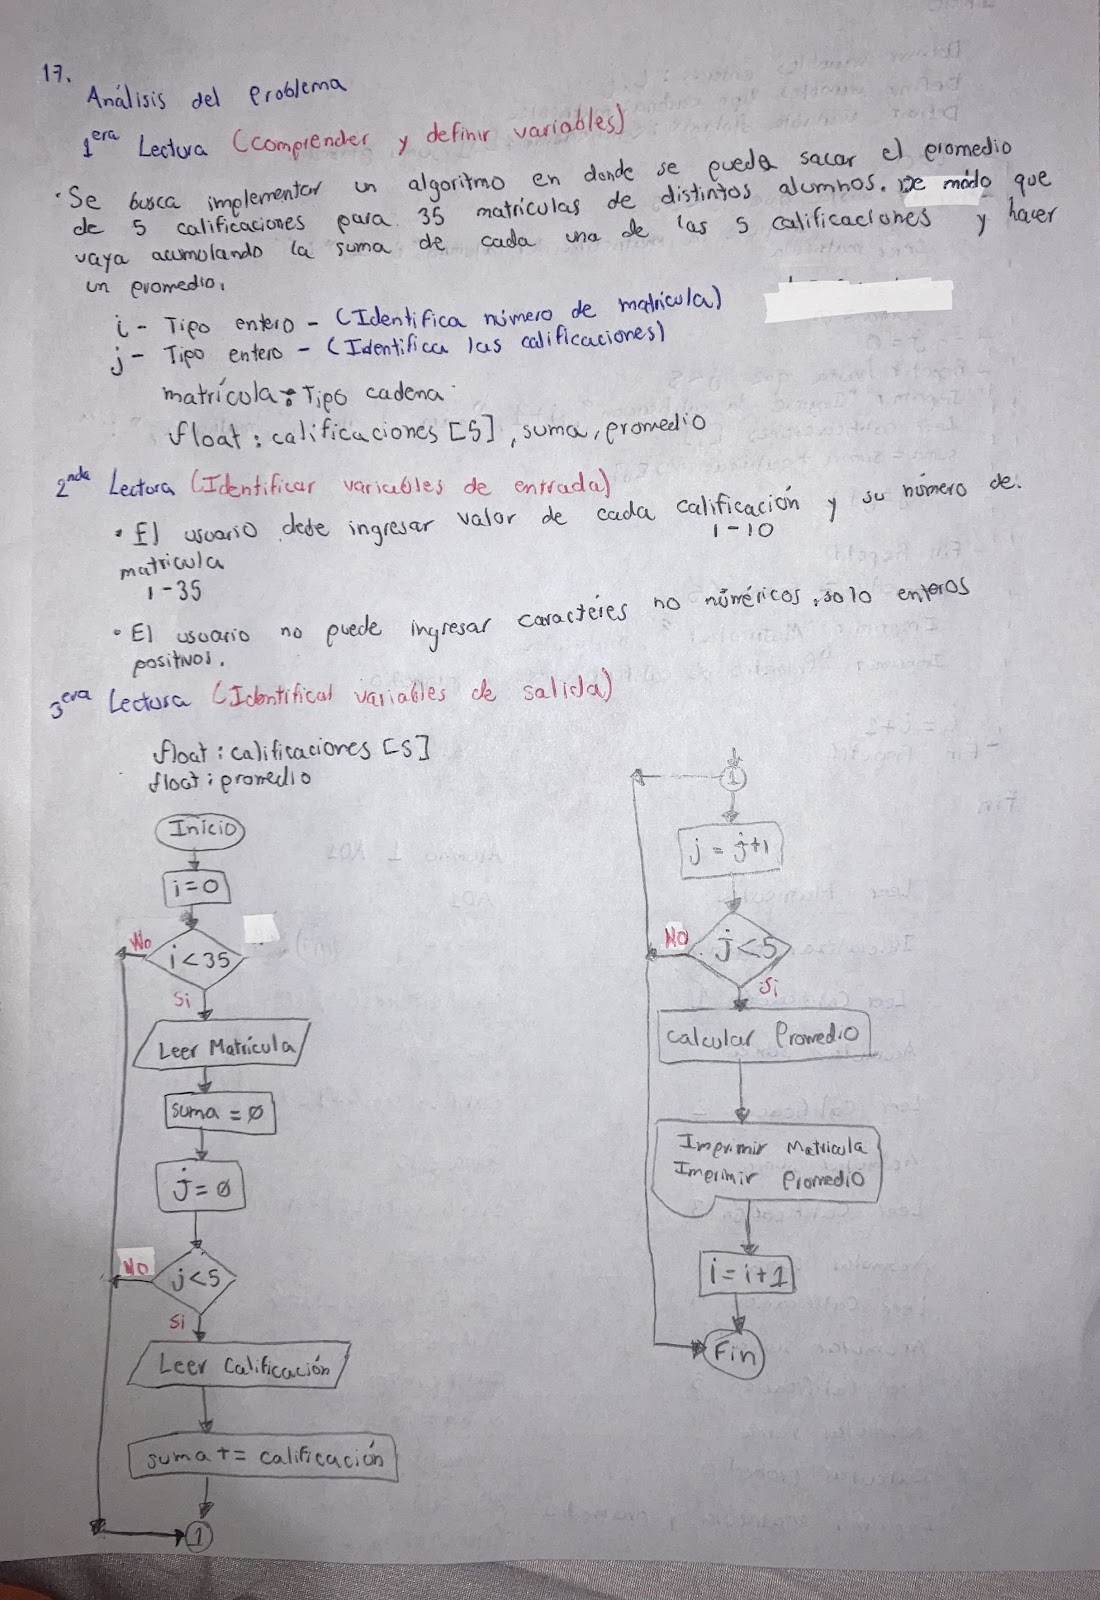 17.
Análisis del Problema
1era Lectura (comprender y definir variables)
· Se busca implementar un algoritmo en donde se pueda sacar el promedio
de 5 calificaciones para 35 matrículas de distintos alumnos. De modo que
vaya acumulando la suma de cada una de las 5 calificaciones y hacer
un promedio.
i - Tipo entero - (Identifica número de matrícula)
j - Tipo entero - (Identifica las calificaciones)
matrícula: Tipo cadena
float: calificaciones [5], suma, promedio
2nda Lectura (Identificar variables de entrada)
· El usuario debe ingresar valor de cada calificación y su número de.
1-10
matricula
1-35
· El usuario no puede ingresar caractéres no númericos, solo enteros
positivos.
3era Lectura (Identificar variables de salida)
float: calificaciones [5]
float: promedio
Inicio
i=0
i<35
No
Si
Leer Matrícula
suma = 0
j=0
j<5
No
Si
Leer Calificación
suma += calificación
1
1
j = j+1
j<5
No
Si
Calcular Promedio
Imprimir Matricula
Imprimir Promedio
i = i+1
Fin